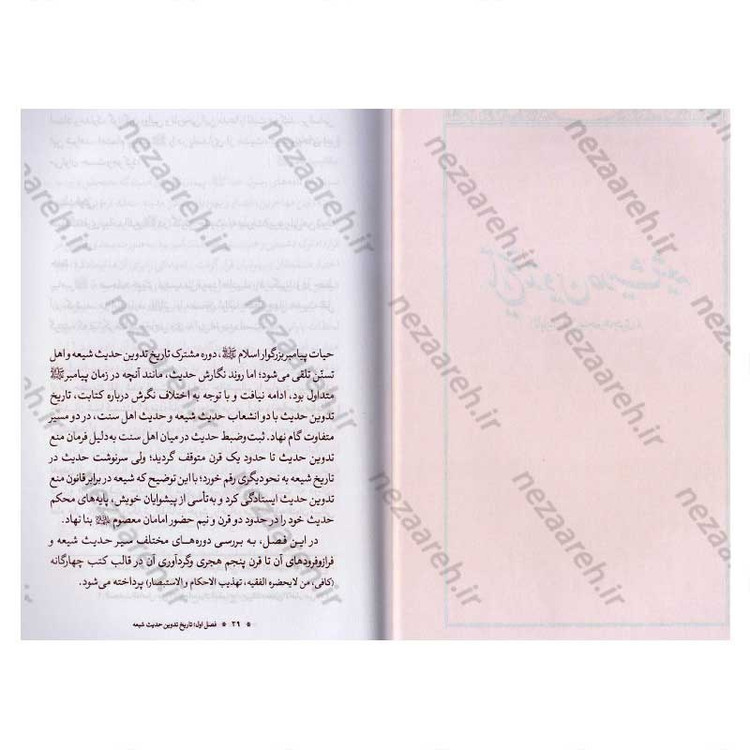 حیات پیامبر بزرگوار اسلام ﷺ، دوره مشترک تاریخ تدوین حدیث شیعه و اهل
تسنّن تلقی می‌شود؛ اما روند نگارش حدیث، مانند آنچه در زمان پیامبر ﷺ
متداول بود، ادامه نیافت و با توجه به اختلاف نگرش درباره کتابت، تاریخ
تدوین حدیث با دو انشعاب حدیث شیعه و حدیث اهل سنت، در دو مسیر
متفاوت گام نهاد. ثبت وضبط حدیث در میان اهل سنت به‌دلیل فرمان منع
تدوین حدیث تا حدود یک قرن متوقف گردید؛ ولی سرنوشت حدیث در
تاریخ شیعه به نحو دیگری رقم خورد؛ با این توضیح که شیعه در برابر قانون منع
تدوین حدیث ایستادگی کرد و به‌تأسی از پیشوایان خویش، پایه‌های محکم
حدیث خود را در حدود دو قرن و نیم حضور امامان معصوم بنا نهاد.
در این فصل، به بررسی دوره‌های مختلف سیر حدیث شیعه و
فرازوفرودهای آن تا قرن پنجم هجری وگردآوری آن در قالب کتب چهارگانه
(کافی، من لایحضره الفقیه، تهذیب الاحکام و الاستبصار) پرداخته می‌شود.
* ۲۹ * فصل اول: تاریخ تدوین حدیث شیعه *
nezaareh.ir
nezaareh.ir
nezaareh.ir
nezaareh.ir
nezaareh.ir
nezaareh.ir
nezaareh.ir
nezaareh.ir